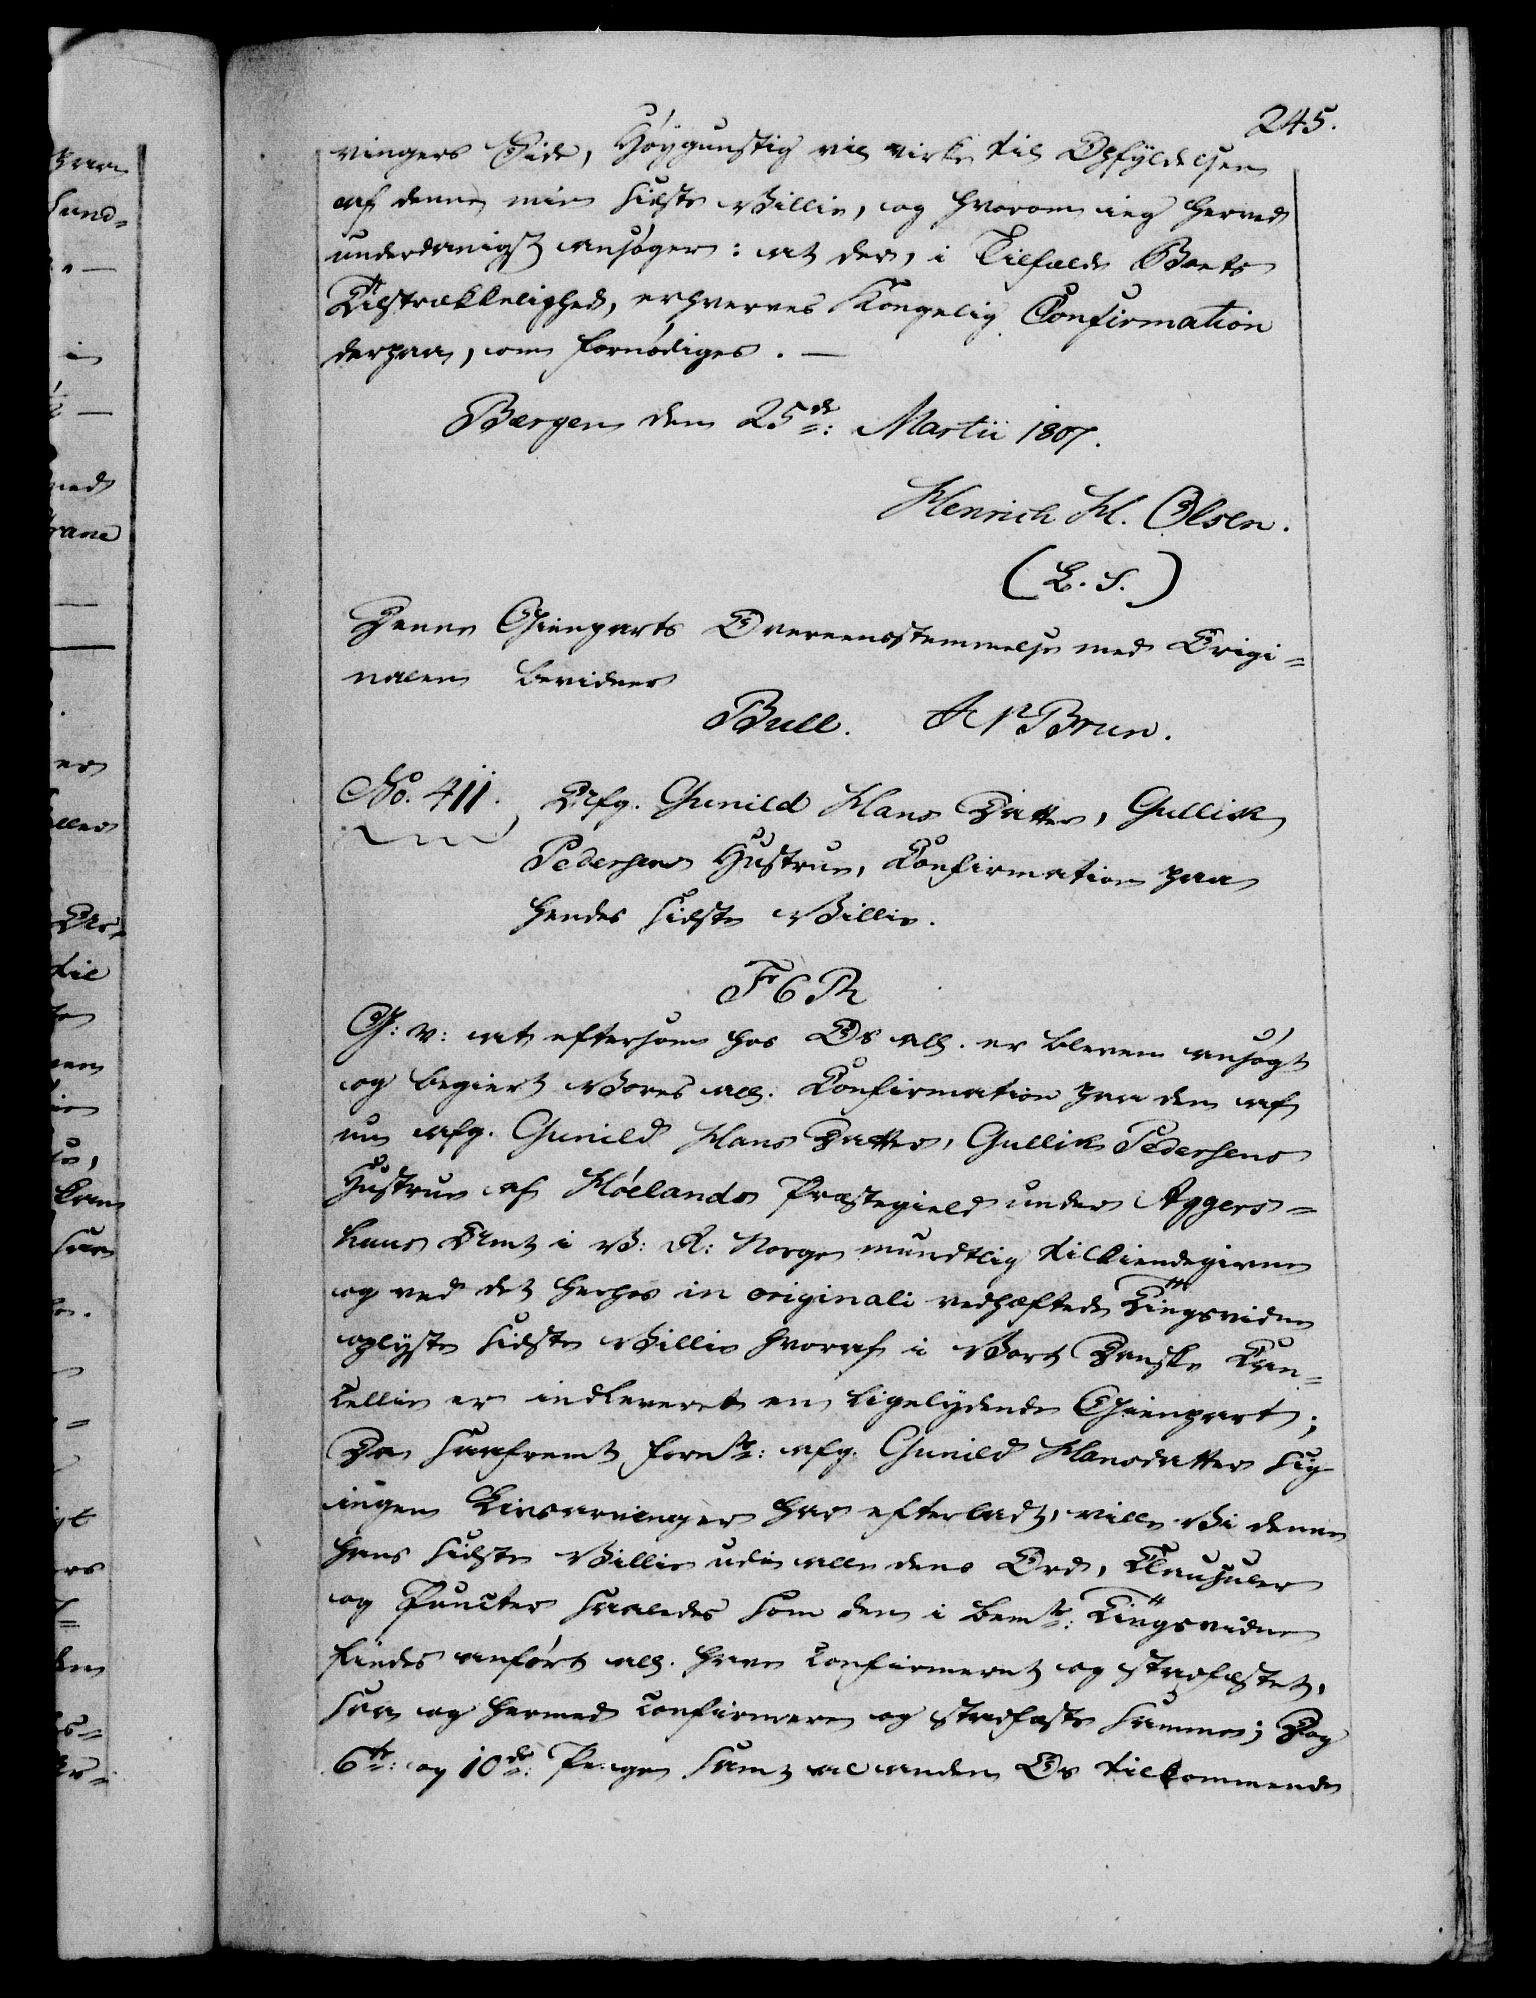 245.
vingers Side, Høygunstig vil virke til Opfyldelsen
af denne min sidste Villie, og hvorom ieg herved
underdanigst ansøger: at der, i Tilfælde Boets
Tilstrækkelighed, erhverves Kongelig Confirmation
derpaa, om fornødiges. —
Bergen den 25de: Martii 1807.
Henrich H. Olsen.
(L. S.)
Denne Gienparts Overeensstemmelse med Origi=
nalen bevidner
Bull. Brun.
No. 411. Afg. Gunild Hans Datter, Gullik
Pedersens Hustrue, Confirmation paa
hendes sidste Villie.
F 6 R
G: v: at eftersom hos Os all. er bleven ansøgt
og begiert Vores all. Confirmation paa den af
nu afg. Gunild Hans Datter, Gullik Pedersens
Hustrue af Høelands Præstegield under Aggers=
huus Amt i V: R: Norge mundtlig tilkiendegivne
og ved det herhos in originali vedhæftede Tingsvidne
oplyste sidste Villie hvoraf i Vort Danske Can=
cellie er indleveret en ligelydende Gienpart;
Da saafremt fornte: afg. Gunild Hansdatter sig
ingen Livsarvinger har efterladt, ville Vi denne
hans sidste Villie udi alle dens Ord, Clausuler
og Puncter saaledes som den i bemte: Tingsvidne
findes anført all. have confirmeret og stadfæstet,
saa og hermed confirmere og stadfæste samme; Dog
6te: og 10de: Penge samt al anden Os tilkommende